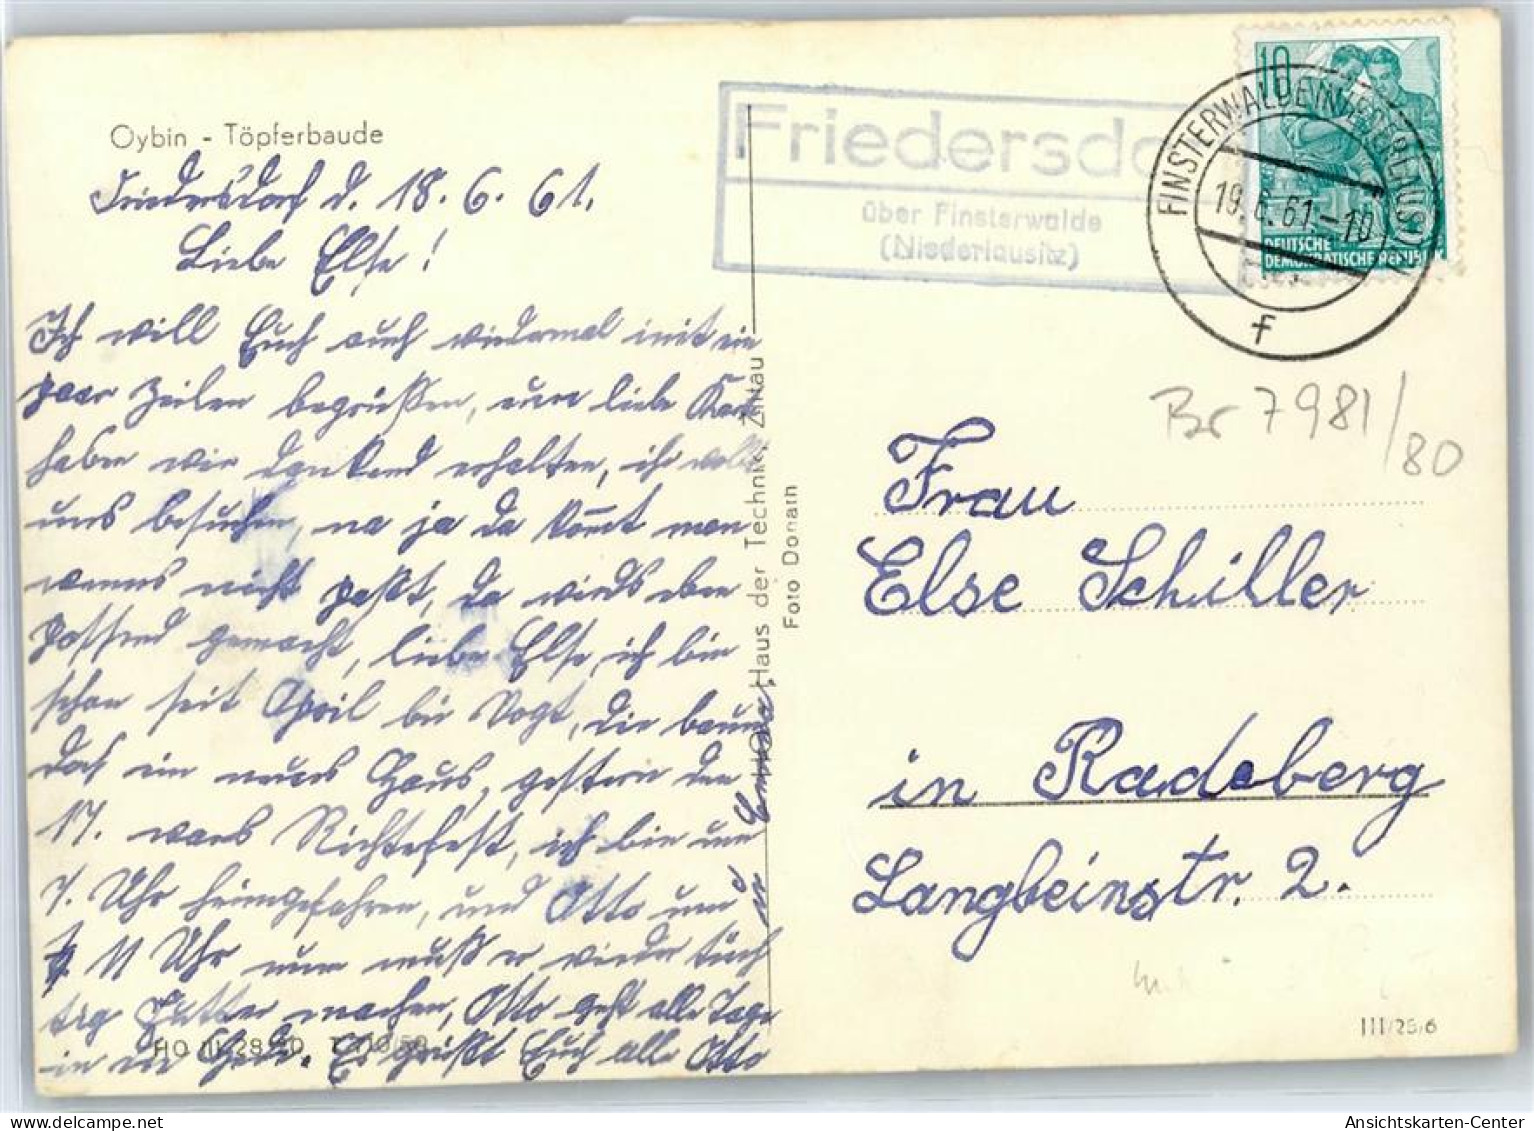 Oybin - Töpferbaude
Friedersdorf d. 18. 6. 61.
Liebe Else!
Ich will Euch auch wiedermal mit ein
paar Zeilen begrüßen, eure liebe Karte
haben wir dankend erhalten, ihr wollt
uns besuchen, na ja da kommt man
wenns nicht paßt, da wirds eben
passend gemacht, liebe Else ich bin
schon seit April bei Vogt, die bauen
doch ein neues Haus, gestern den
17. wars Richtefest, ich bin um
7. Uhr heimgefahren, und Otto um
11 Uhr nun muß er wieder tüch
tig Futter machen, Otto geht alle Tage
in die Heide. Es grüßt Euch alle Otto
Haus der Technik, Zittau
Foto Donath
Friedersdo
über Finsterwalde
(Niederlausitz)
FINSTERWALDE (NIEDERLAUS)
19.6.61.-10
f
10
DEUTSCHE
DEMOKRATISCHE REPUBLIK
Br 7981/80
Frau
Else Schiller
in Radeberg
Langbeinstr. 2.
III/26/6
Ansichtskarten-Center.net